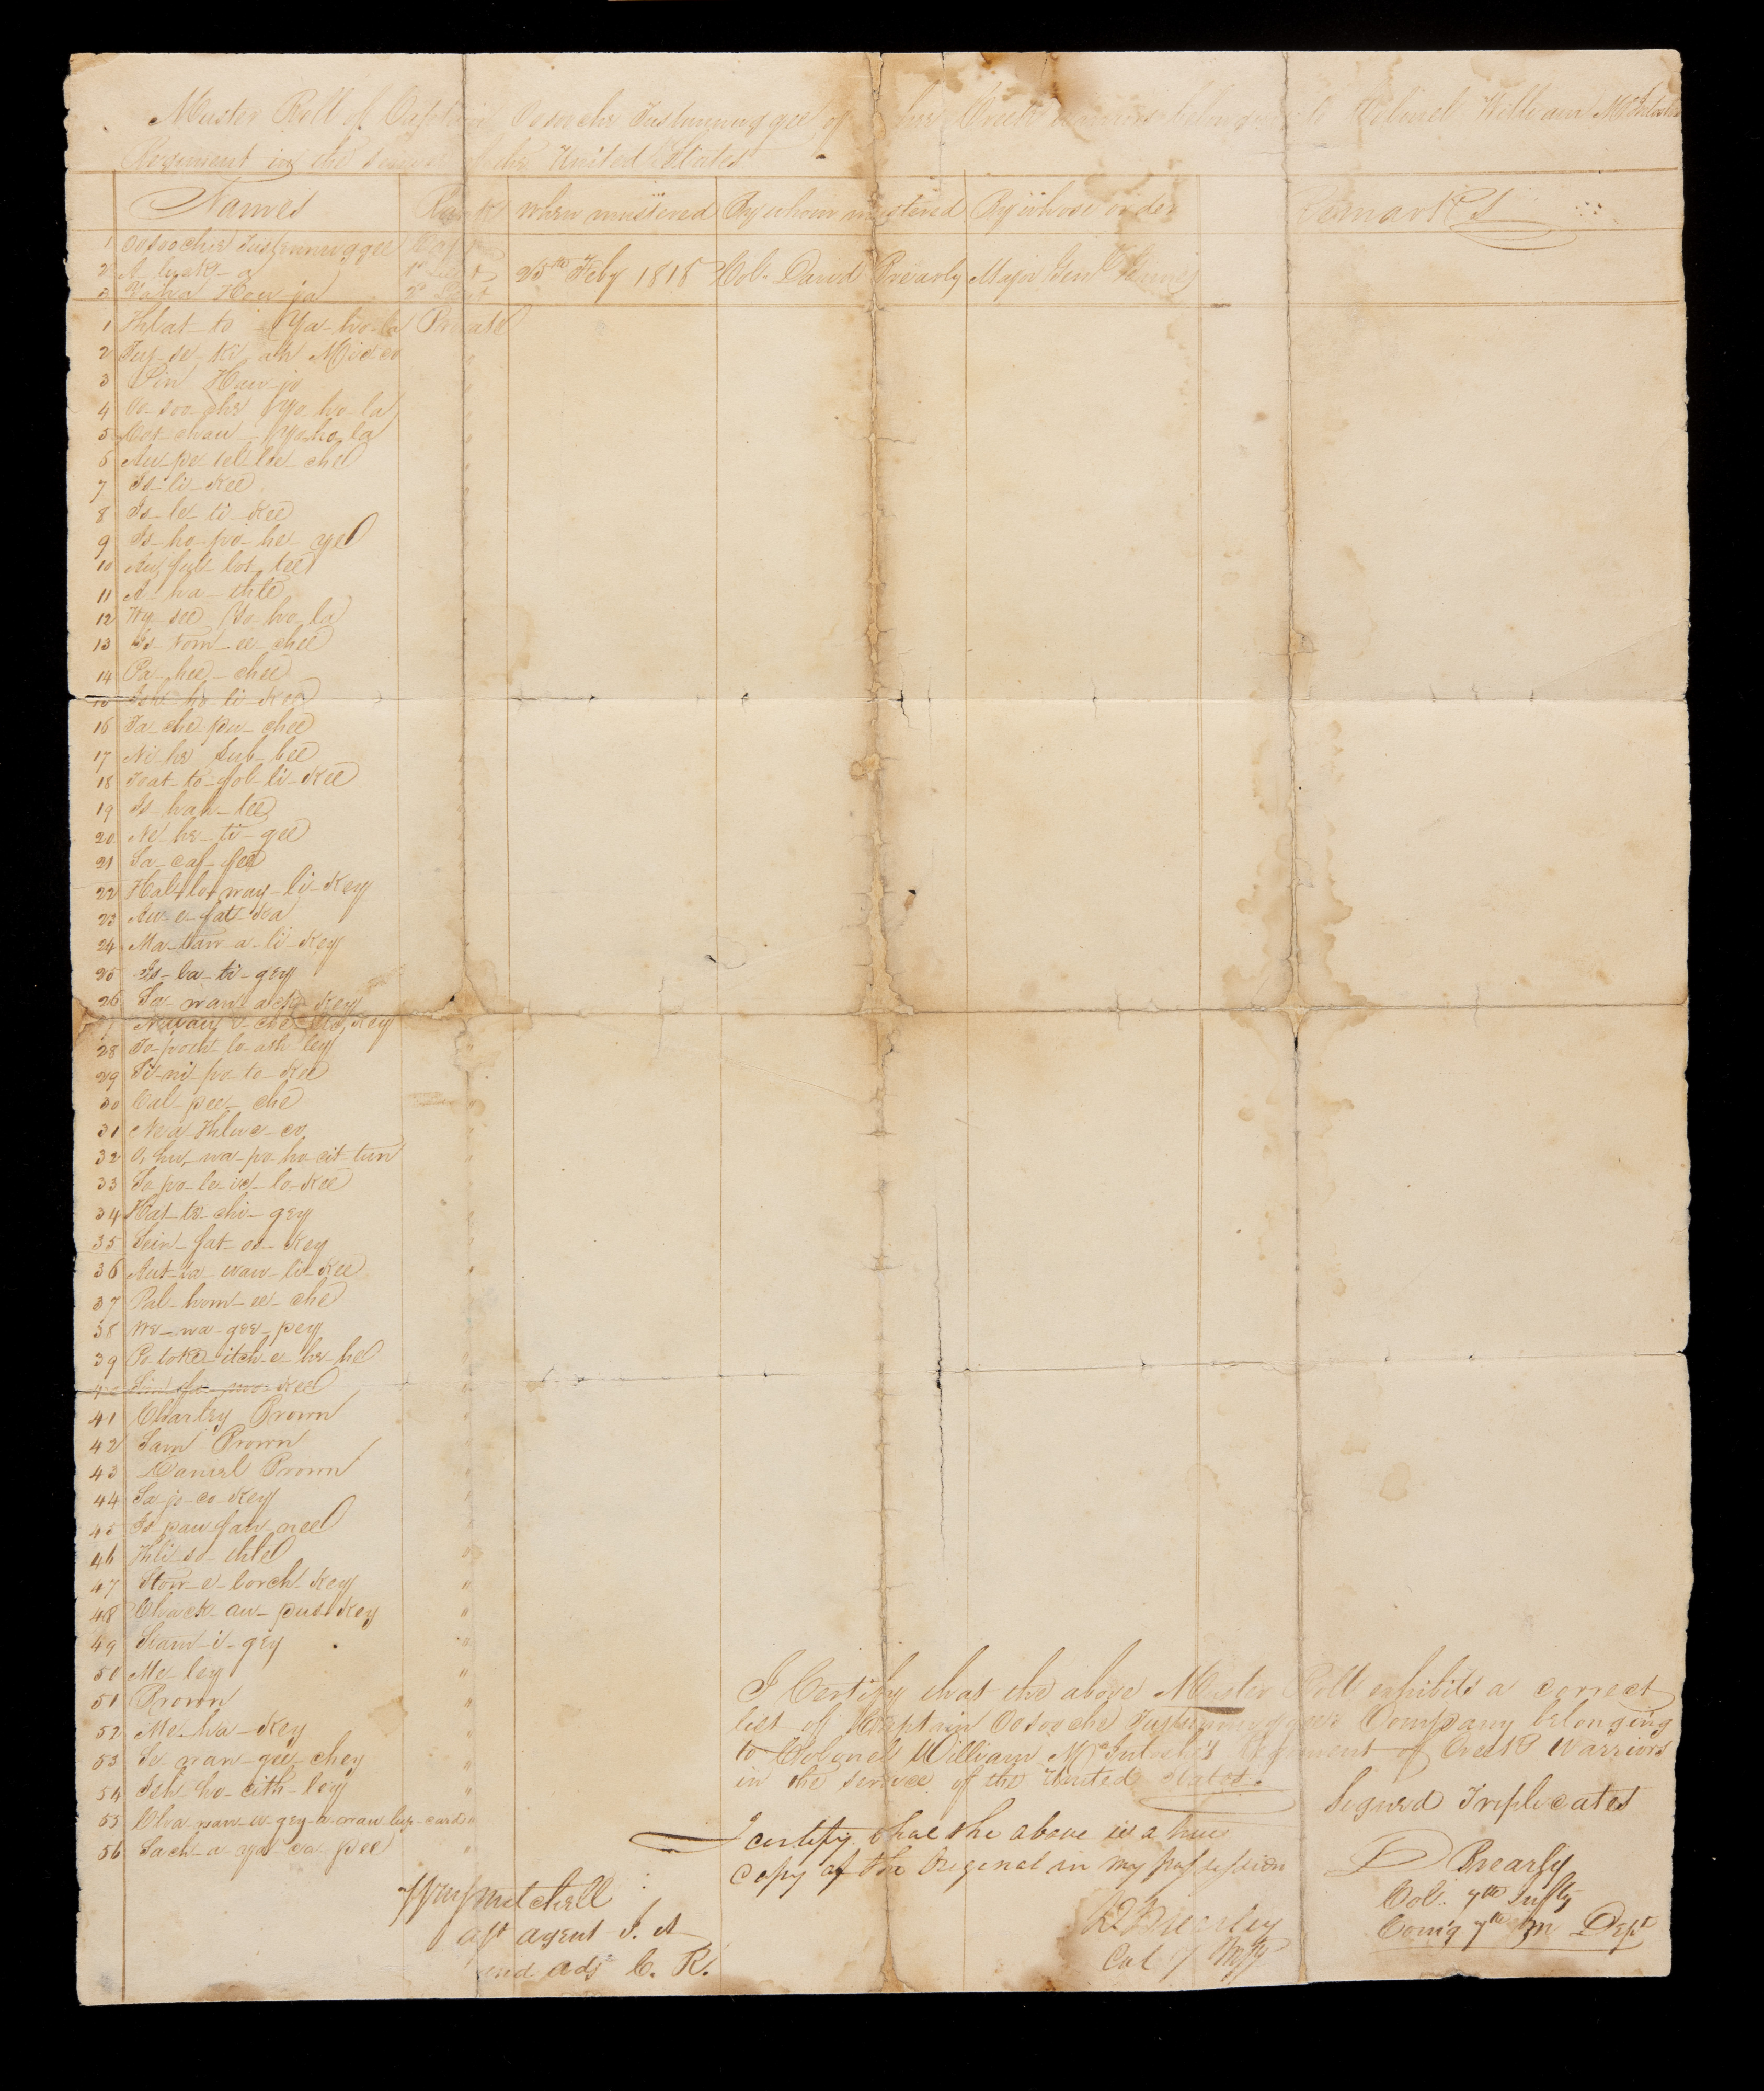 Muster Roll of Captain Oosooche Tustunnuggee of the Creek Warriors belonging to Colonel William McIntosh
Regiment in the Service of the United States
Names Rank when mustered By whom mustered By whose order Remarks
1 Oosooche Tustunnuggee Capt
2 A- 1st Lieut 25th Feby 1818 Col. David Brearly Major Genl Gaines
3 Hau jo 2d Lieut
1 Thlat to Ya-ho-la Private
2 Tus-se-ki ah Micco "
3 Pin Hau-jo "
4 Oo-soo-che Yo-ho-la "
5 Cot-chau-Yo-ho-la "
6 Au-pe tel-lee-che "
7 Is-li-kee "
8 Is-le-ti-kee "
9 Is-ho-po-he-yee "
10 lot-tee "
11 A-ha-thle "
12 Wy-see Yo-ho-la "
13 Is-tom-ee-chee "
14 Pa-hee-chee "
15 Ish-ho-li-kee "
16 Ta-che-pu-chee "
17 Ni-he Sub-bee "
18 Toat-to-fol-li-kee "
19 Is-hah-tee "
20 Ne-he-ti-gee "
21 Sa-caf-fee "
22 Hal-lo-way-li-key "
23 Au-e-fat-ka "
24 Ma-taw-a-li-key "
25 Is-la-ti-gey "
26 So-wan-ack-key "
27 key "
28 To-poch-lo-ath-ley "
29 Si-ni-po-to-kee "
30 Cal-pee-che "
31 Ne-a Thluc-co "
32 O-hu-wa-po-ho-cit-tun "
33 So-po-le-ic-lo-kee "
34 Hat-te-chi-gey "
35 Sein-fat-os-key "
36 Aut-ta-wau-li-kee "
37 Pal-hom-ee-che "
38 We-wa-gee-pey "
39 Po-toke-itch-e-he-he "
40 kee "
41 Charley Brown "
42 Sam Brown "
43 Daniel Brown "
44 Sa-jo-co-key "
45 Is-pau-fau-nee "
46 Thli-so-thle "
47 Stow-e-lorch-key "
48 Chack-au-pus-key "
49 Siam-i-gey "
50 Me-ley "
51 Brown "
52 Me-ha-key "
53 Se-wan-gee-chey "
54 Ish-ho-cith-ley "
55 Cha-wan-u-gey-a- "
56 Sach-a-ya-ca-pee "
I Certify that the above Muster Roll exhibits a correct
list of Captain Oosooche Tustunnuggee's Company belonging
to Colonel William McIntosh's Regiment of Creek Warriors
in the service of the United States.
Signed Triplicates
D Brearly
Col. 7th Infty
Comg 7th M Dept
I certify that the above is a true
copy of the Original in my possession
D Brearley
Col 7 Infy
Mitchell
ast agent I. A
and adjt C. R.